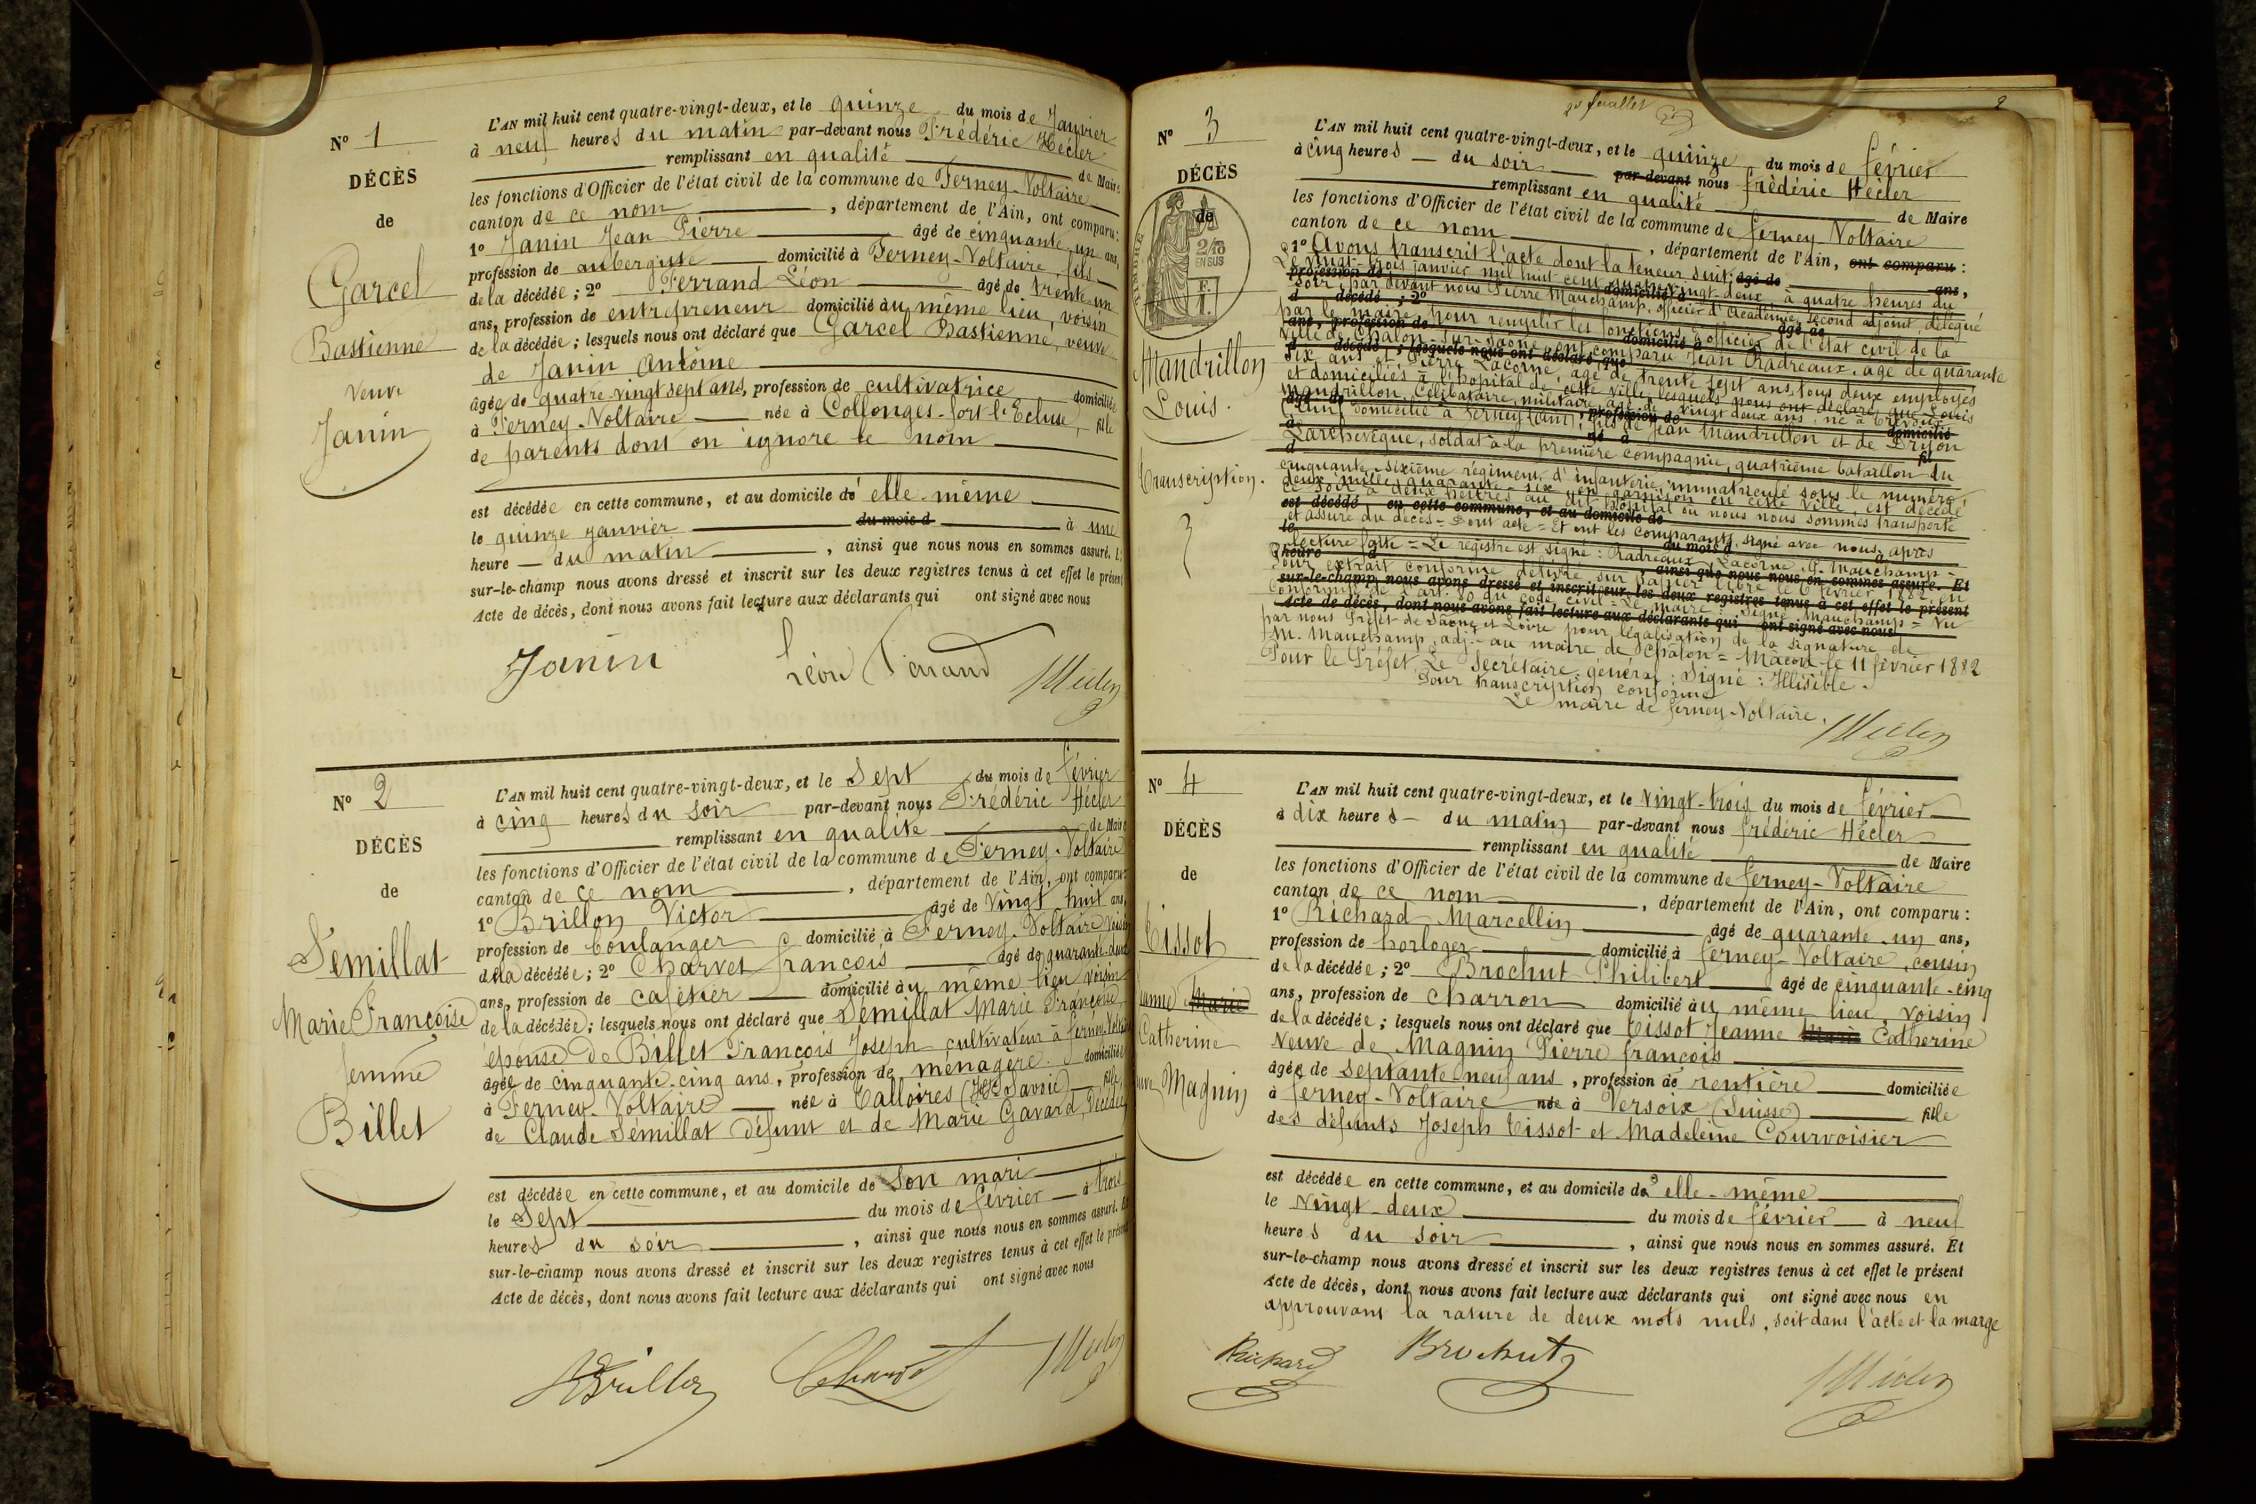 N° 1
DÉCÈS
de
Garcel
Bastienne
Veuve
Janin
L'AN mil huit cent quatre-vingt-deux, et le quinze du mois de Janvier
à neuf heures du matin par-devant nous Frédéric Hécler
remplissant en qualité de Maire
les fonctions d'Officier de l'état civil de la commune de Ferney-Voltaire
canton de ce nom, département de l'Ain, ont comparu:
1° Janin Jean Pierre âgé de cinquante-un ans,
profession de aubergiste domicilié à Ferney-Voltaire, fils
de la décédée; 2° Ferrand Léon âgé de trente-un
ans, profession de entrepreneur domicilié au même lieu, voisin
de la décédée; lesquels nous ont déclaré que Garcel Bastienne, veuve
de Janin Antoine
âgée de quatre-vingt sept ans, profession de cultivatrice domiciliée
à Ferney-Voltaire née à Collonges-fort-l'Ecluse, fille
de parents dont on ignore le nom
est décédée en cette commune, et au domicile d' elle-même
le quinze janvier du mois d à une
heure du matin, ainsi que nous nous en sommes assuré.
sur-le-champ nous avons dressé et inscrit sur les deux registres tenus à cet effet le présent
Acte de décès, dont nous avons fait lecture aux déclarants qui ont signé avec nous
Janin Léon Ferrand Hécler
N° 2
DÉCÈS
de
Sémillat
Marie Françoise
femme
Billet
L'AN mil huit cent quatre-vingt-deux, et le Sept du mois de février
à cinq heures du soir par-devant nous Frédéric Hécler
remplissant en qualité de Maire
les fonctions d'Officier de l'état civil de la commune de Ferney-Voltaire
canton de ce nom, département de l'Ain, ont comparu:
1° Brillon Victor âgé de Vingt huit ans,
profession de boulanger domicilié à Ferney-Voltaire Voisin
de la décédée; 2° Charvet françois âgé de quarante-deux
ans, profession de cafetier domicilié au même lieu voisin
de la décédée; lesquels nous ont déclaré que Sémillat Marie Françoise
épouse de Billet François Joseph cultivateur à ferney-Voltaire
âgée de cinquante-cinq ans, profession de ménagère domiciliée
à Ferney-Voltaire née à Talloires (Hte Savoie) fille
de Claude Sémillat défunt et de Marie Gavard Décédée
est décédée en cette commune, et au domicile de Son mari
le Sept du mois de février à trois
heures du soir, ainsi que nous nous en sommes assuré. Et
sur-le-champ nous avons dressé et inscrit sur les deux registres tenus à cet effet le présent
Acte de décès, dont nous avons fait lecture aux déclarants qui ont signé avec nous
VBrillon Charvet Hécler
2e feuillet 2
N° 3
DÉCÈS
de
TIMBRE
2/10
EN SUS
F.
1.
Mandrillon
Louis.
Transcription.
L'AN mil huit cent quatre-vingt-deux, et le quinze du mois de février
à cinq heures du soir par-devant nous frédéric Hécler
remplissant en qualité de Maire
les fonctions d'Officier de l'état civil de la commune de ferney-Voltaire
canton de ce nom, département de l'Ain, ont comparu:
1° Avons transcrit l'acte dont la teneur suit: âgé de ans,
Le vingt-trois janvier mil huit cent quatre-vingt-deux, à quatre heures du
profession de domicilié à
soir, par devant nous Pierre Mauchamp, officier d'Académie, second adjoint, délégué
d décédé; 2° âgé de
par le maire, pour remplir les fonctions d'officier de l'état civil de la
ans, profession de domicilié à
Ville de Chalon-sur-Saône, ont comparu Jean Radreaux, âgé de quarante
d décédé; lesquels nous ont déclaré que
Six ans et Pierre Lacorne, âgé de trente sept ans, tous deux employés
et domiciliés à l'hôpital de cette ville, lesquels nous ont déclaré que Louis
Mandrillon, Célibataire, militaire, âgé de vingt deux ans, né à Trévoux
âgé de, profession de domicilié
(Ain) domicilié à Ferney (Ain), fils de Jean Mandrillon et de Dryon
à né à fil
Larchevêque, soldat à la première compagnie, quatrième bataillon du
d
cinquante-sixième régiment d'infanterie, immatriculé sous le numéro
deux mille quarante-six, en garnison en cette ville, est décédé
ce soir à deux heures au dit hôpital où nous nous sommes transporté
est décédé en cette commune, et au domicile de
et assuré du décès = Dont acte = Et ont les comparants, signé avec nous, après
le du mois d à
lecture faite = Le registre est signé: Radreaux, Lacorne, P. Mauchamp =
heure d, ainsi que nous nous en sommes assuré. Et
Pour extrait conforme délivré sur papier libre le 6 février 1882, en
sur-le-champ nous avons dressé et inscrit sur les deux registres tenus à cet effet le présent
conformité de l'art. 80 du code civil = Le maire: Signé Mauchamp = Vu
Acte de décès, dont nous avons fait lecture aux déclarants qui ont signé avec nous
par nous Préfet de Saône et Loire pour légalisation de la signature de
M. Mauchamp, adj.- au maire de Chalon = Mâcon le 11 février 1882
Pour le Préfet Le Secrétaire général: Signé: Illisible.
Pour transcription conforme
Le maire de ferney-Voltaire.
Hécler
N° 4
DÉCÈS
de
Tissot
Marie
Catherine
Magnin
L'AN mil huit cent quatre-vingt-deux, et le Vingt-trois du mois de février
à dix heures du matin par-devant nous frédéric Hécler
remplissant en qualité de Maire
les fonctions d'Officier de l'état civil de la commune de ferney-Voltaire
canton de ce nom, département de l'Ain, ont comparu:
1° Richard Marcellin âgé de quarante-un ans,
profession de horloger domicilié à ferney-Voltaire, cousin
de la décédée; 2° Brochut Philibert âgé de cinquante-cinq
ans, profession de charron domicilié au même lieu, Voisin
de la décédée; lesquels nous ont déclaré que Tissot Jeanne Marie Catherine
Veuve de Magnin Pierre françois
âgée de septante-neuf ans, profession de rentière domiciliée
à ferney-Voltaire née à Versoix (Suisse) fille
des défunts Joseph Tissot et Madeleine Courvoisier
est décédée en cette commune, et au domicile d' elle-même
le Vingt-deux du mois de février à neuf
heures du soir, ainsi que nous nous en sommes assuré. Et
sur-le-champ nous avons dressé et inscrit sur les deux registres tenus à cet effet le présent
Acte de décès, dont nous avons fait lecture aux déclarants qui ont signé avec nous en
approuvant la rature de deux mots nuls, soit dans l'acte et la marge
Richard Brochut Hécler